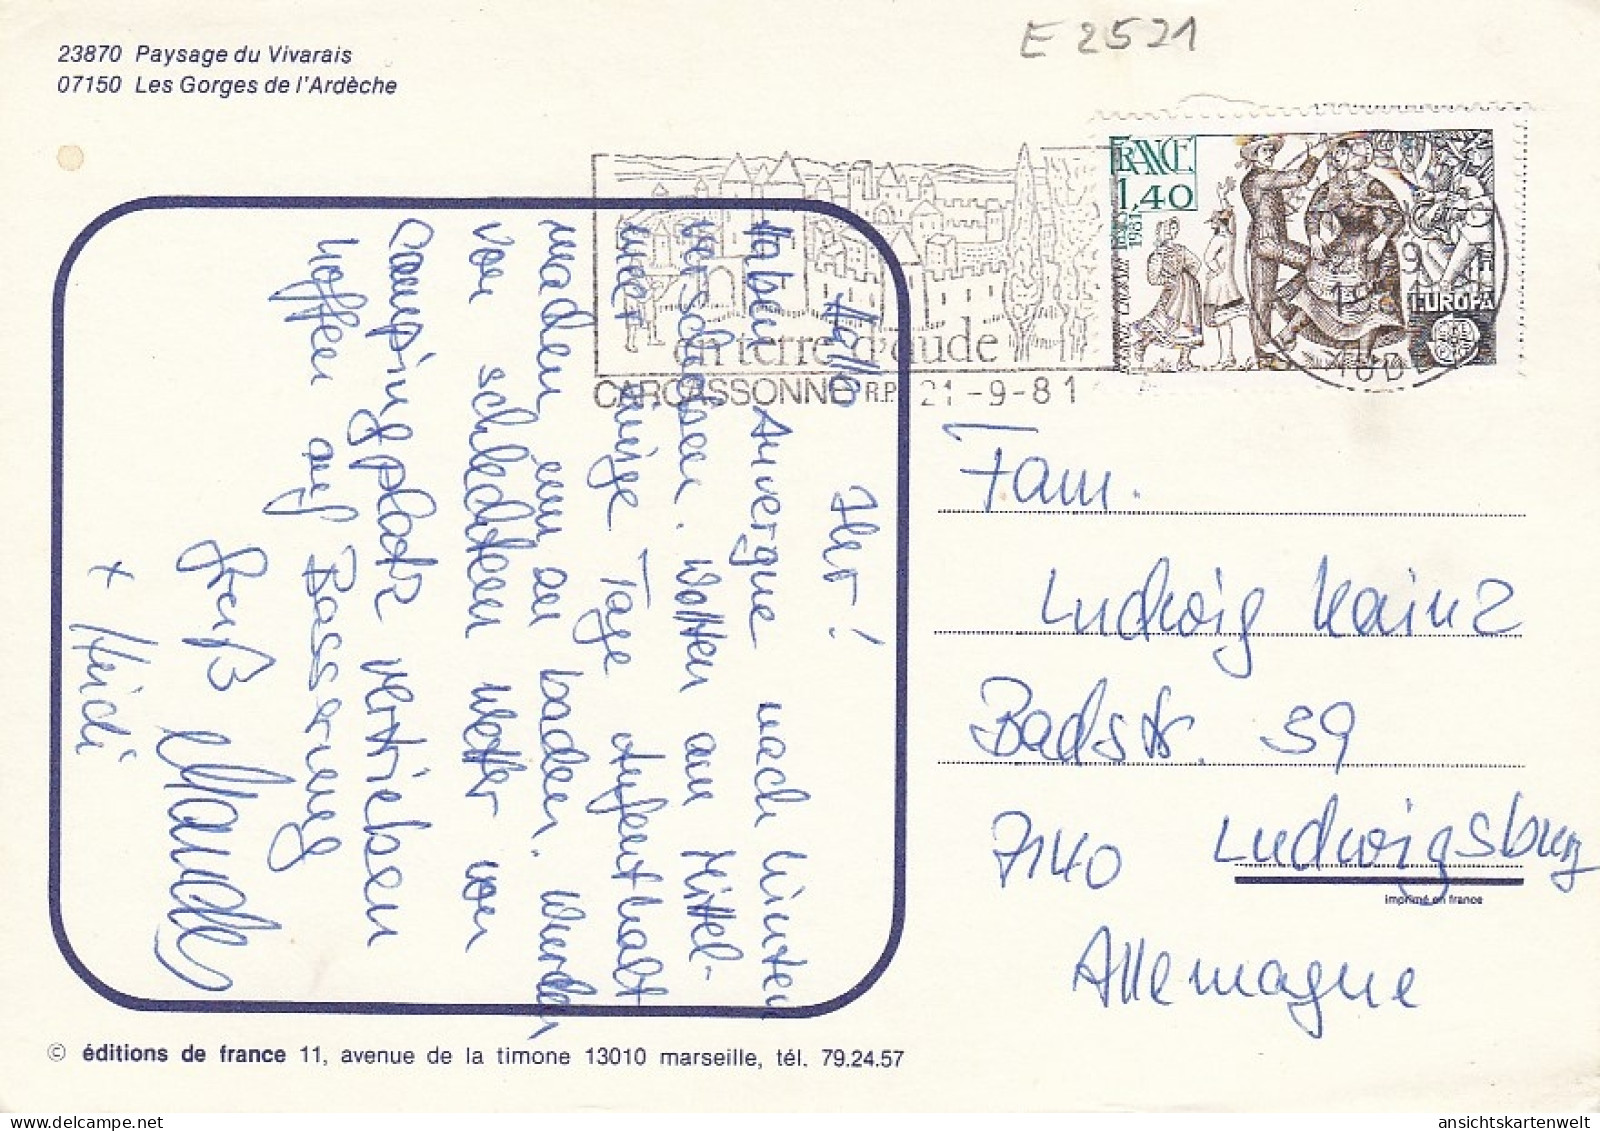 E 2521
23870 Paysage du Vivarais
07150 Les Gorges de l'Ardèche
FRANCE
1,40
1981
EUROPA
en terre d'aude
CARCASSONNE R.P. 21-9-81
AUDE
Hallo Ihr!
Haben Auvergne nach hinten
verschoben. Wollten am Mittel-
meer einige Tage Aufenthalt
machen um zu baden. Wurden
von schlechtem Wetter von
Campingplatz vertrieben
hoffen auf Besserung
Gruß
+ Heidi
Fam.
Ludwig Kainz
Badstr. 39
7140 Ludwigsburg
imprimé en france
Allemagne
© éditions de france 11, avenue de la timone 13010 marseille, tél. 79.24.57
ansichtskartenwelt